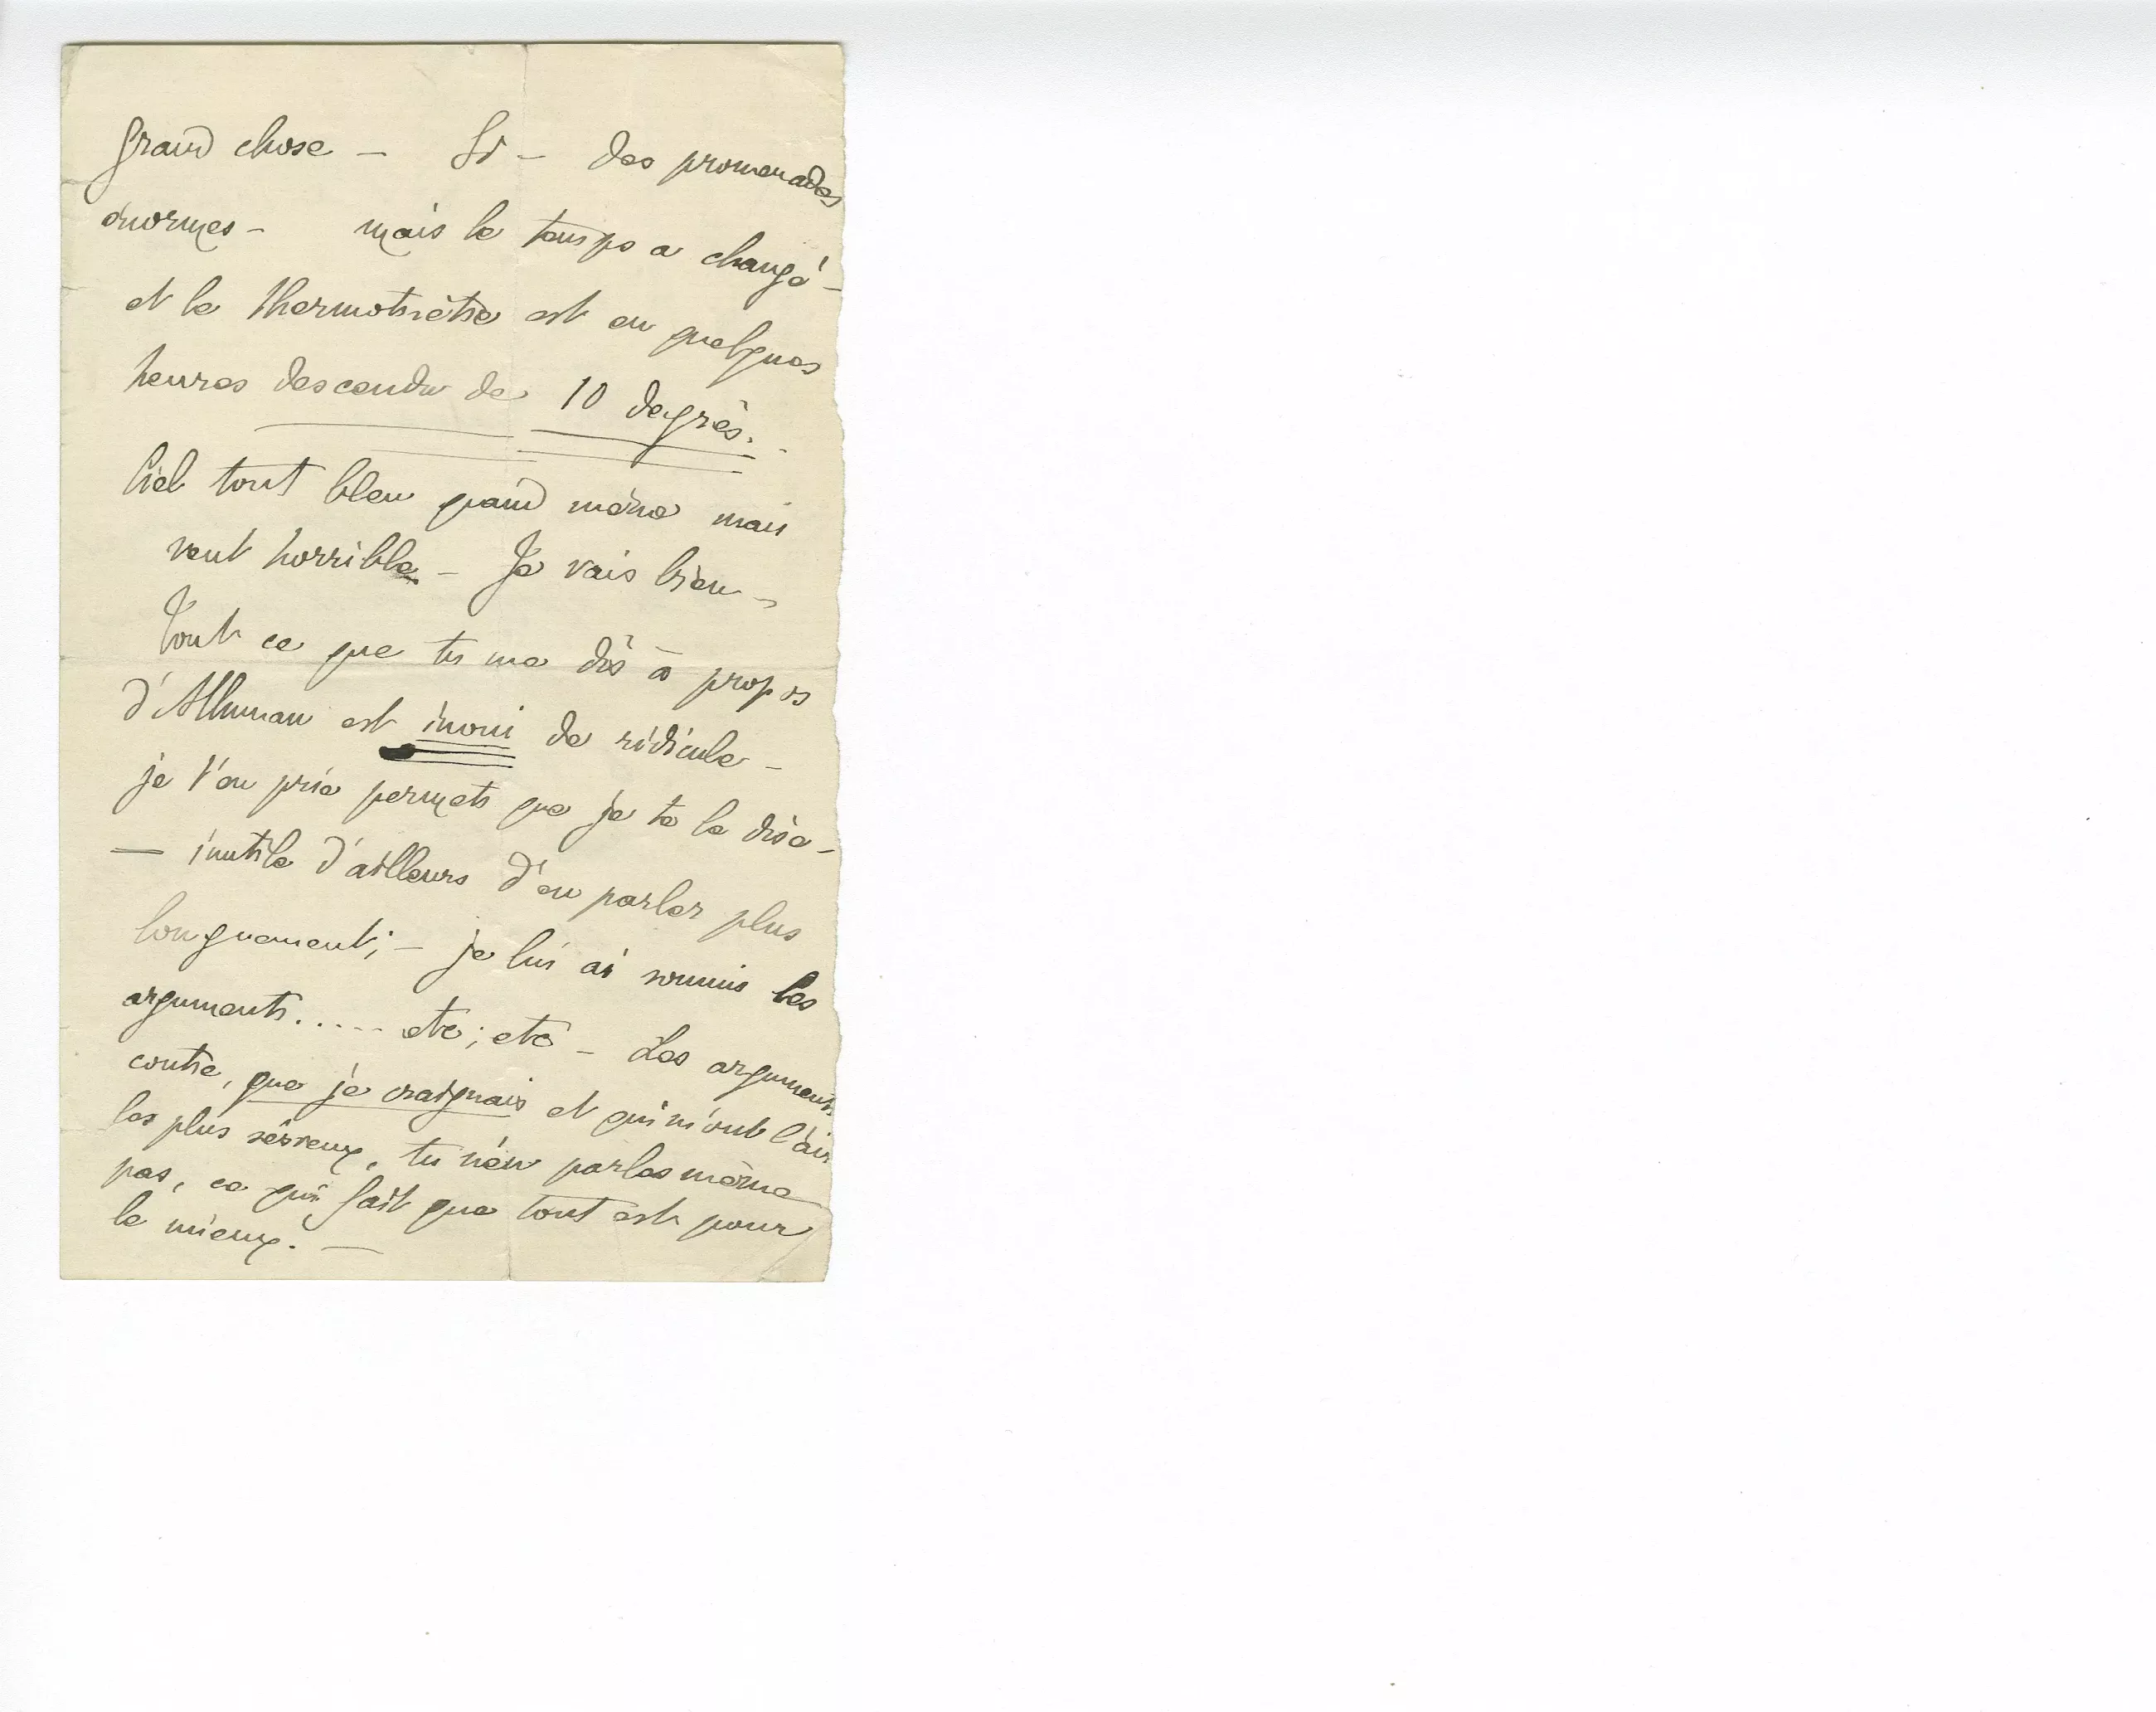 grand chose — Si — des promenades
énormes — mais le temps a changé —
et le thermomètre est en quelques
heures descendu de 10 degrès.
Ciel tout bleu quand même mais
vent horrible — Je vais bien —
Tout ce que tu me dis à propos
est inouï de ridicule —
je t'en prie permets que je te le dise —
— inutile d'ailleurs d'en parler plus
longuement; — je lui ai soumis les
arguments..... etc; etc — Les arguments
contre, que je craignais et qui m'ont l'air
les plus sérieux, tu n'en parles même
pas, ce qui fait que tout est pour
le mieux. —